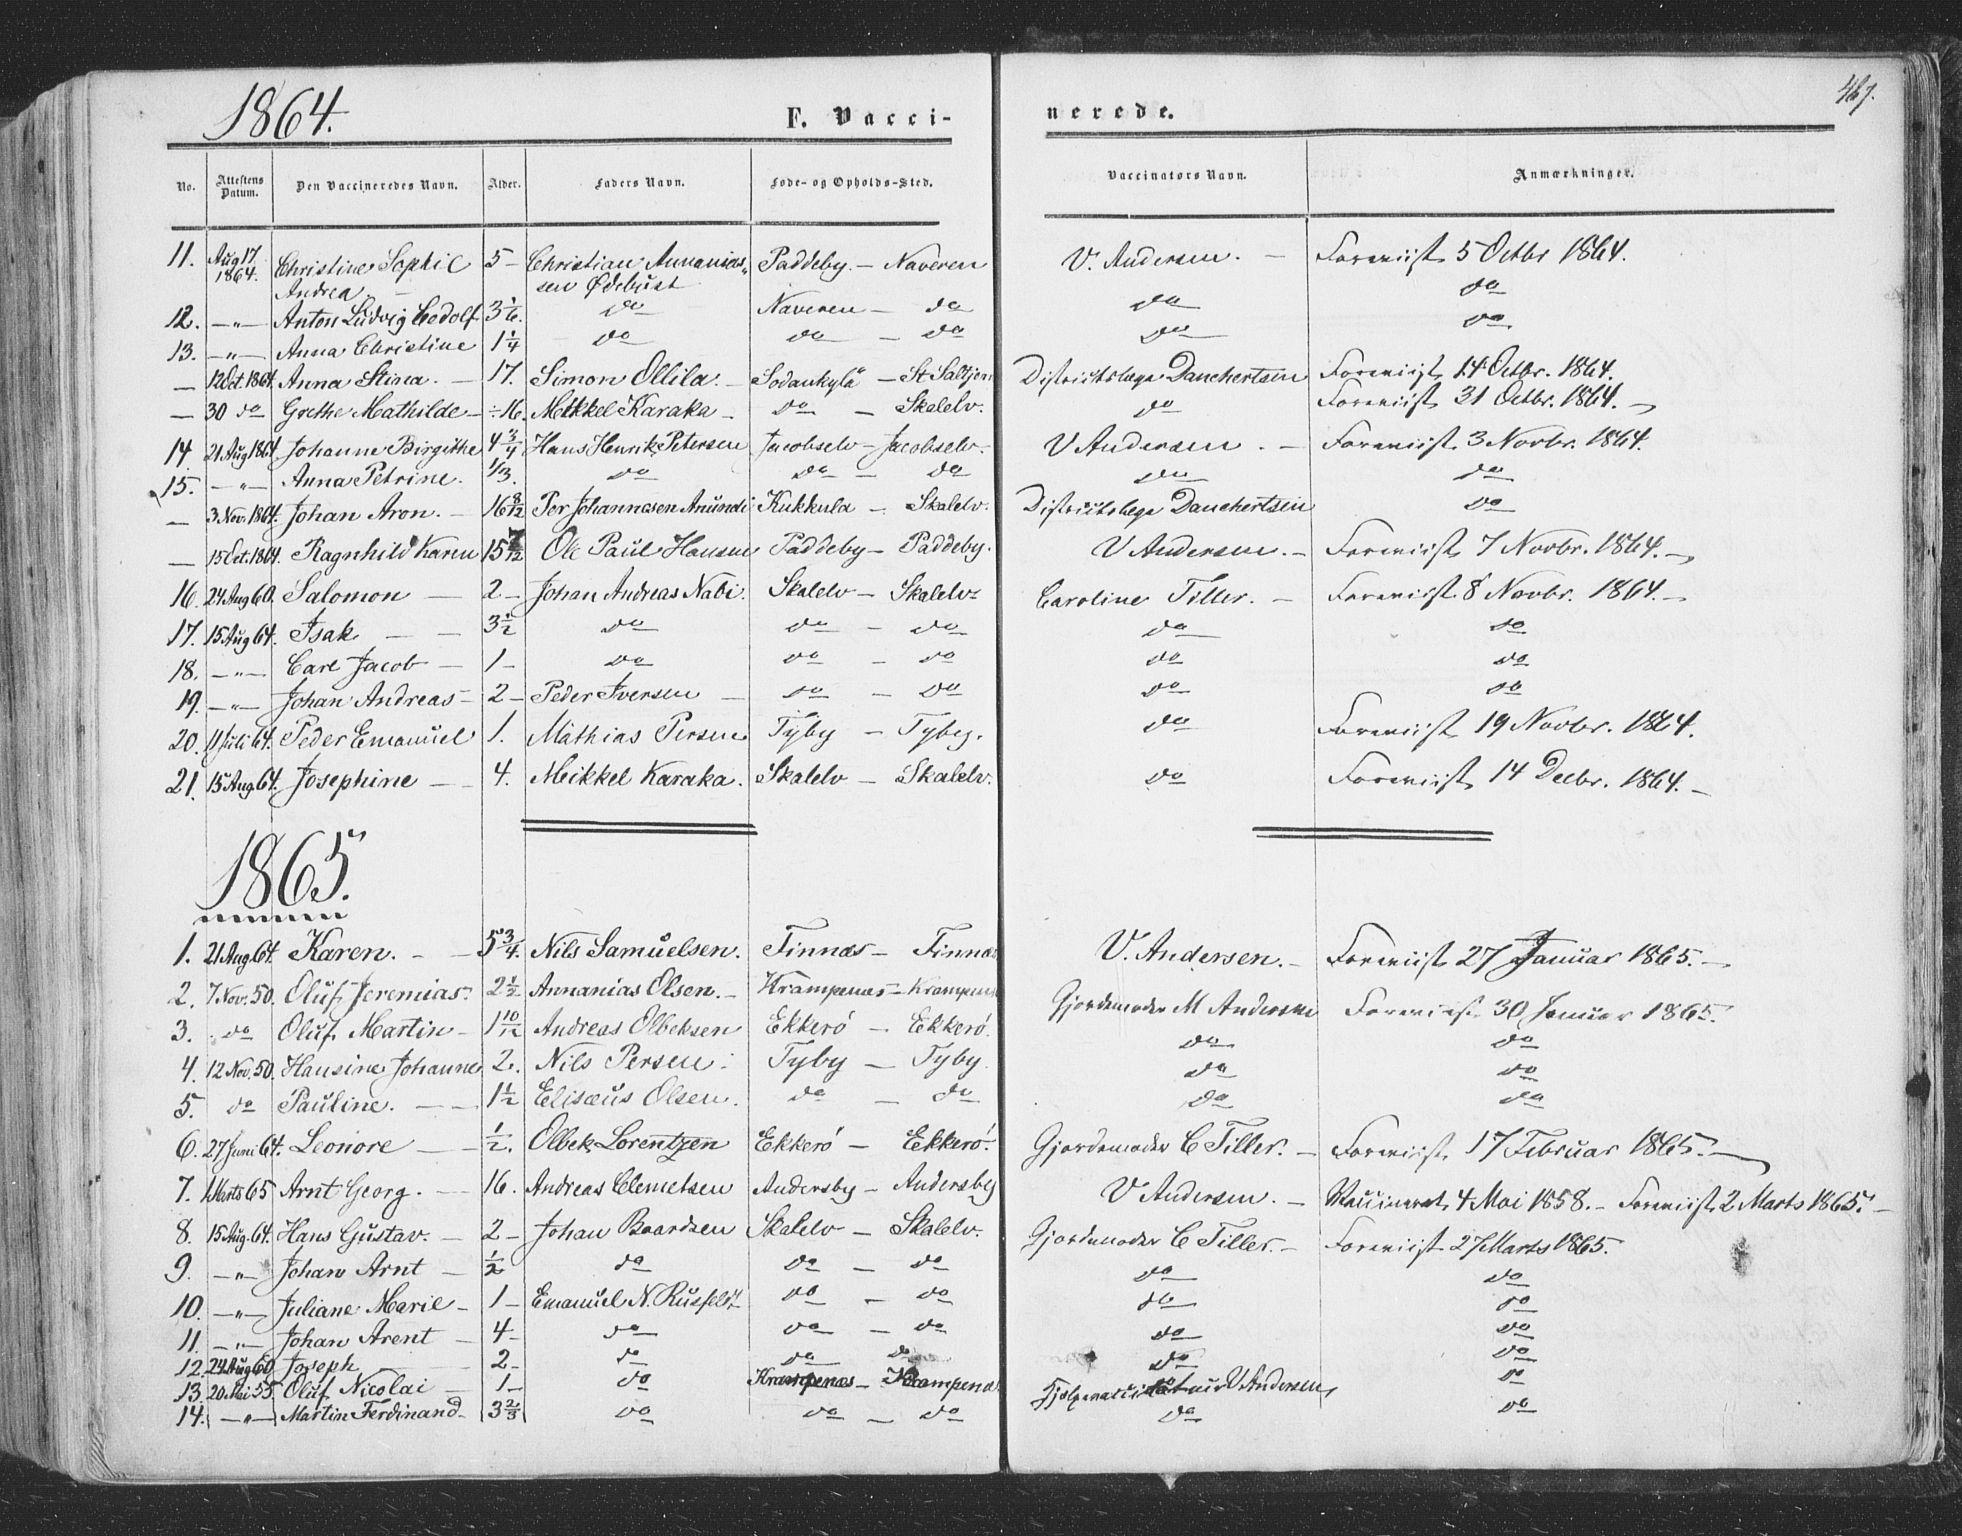 467.
1864.
F. Vacci-
nerede.
No. Attestens Datum. Den Vaccineredes Navn. Alder. Faders Navn. Føde- og Opholds-Sted. Vaccinators Navn. Anmærkninger.
11. Aug 17 1864. Christine Sophie Andrea 5 – Christian Annanias„sen Ødebust Paddeby. – Naveren V. Andersen. – Foreviist 5 Octbr 1864.
12. –„– Anton Ludvig Cedolf 3 1/6. do Naveren – do do do
13. –„– Anna Christine 1 1/4 do do – do do do
– 12 Oct. 1864. Anna Stina. – 17. Simon Ollila. – Sodankylä – Distriktslæge Danchertsen Foreviist 14 Octbr. 1864.
– 30 do Grethe Mathilde – 16. Meikkel Karaka – do – Skalelv. do Foreviist 31 Octbr. 1864. –
14 21 Aug 1864 Johanne Birgithe 4 3/4 Hans Henrik Petersen Jacobselv – Jacobselv. V Andersen. – Foreviist 3 Novbr. 1864.
15. –„– Anna Petrine. 1/3. do do – do do do
– 3 Nov. 1864. Johan Aron. – 16 8/12 Per Johannesen Anundi Kukkula – Skalelv. Distriktslæge Danchertsen do
– 15 Oct. 1864. Ragnhild Karen 15 7/12 Ole Paul Hansen Paddeby – Paddeby. V Andersen. – Foreviist 7 Novbr. 1864. –
16. 24 Aug 60. Salomon – 2 – Johan Andreas Nabi. Skalelv – Skalelv. Caroline Tiller. – Foreviist 8 Novbr. 1864. –
17. 15 Aug 64. Isak – – 3 1/2 do do – do do do
18. –„– Carl Jacob – 1 – do do – do do do
19. –„– Johan Andreas – 2 – Peder Iversen – do – do do do
20. 11 Juli 64. Peder Emanuel 1. Mathias Persen Tyby – Tyby. do Foreviist 19 Novbr. 1864.
21. 15 Aug. 64. Josephine – 4. Meikkel Karaka. Skalelv – Skalelv. do Foreviist 14 Decbr. 1864. –
1865.
1. 21 Aug. 64. Karen. – – 5 3/4. Nils Samuelsen. Finnæs – Finnæs V. Andersen. – Foreviist 27 Januar 1865. –
2. 7 Nov. 50. Oluf Jeremias. 2 1/2 Annanias Olsen. – Krampenæs – Krampenæs Gjordemoder M Andersen Foreviist 30 Januar 1865.
3. do Oluf Martin – 1 10/12 Andreas Olbeksen Ekkerö – Ekkerö. do do
4. 12 Nov. 50. Hansine Johanne 2. Nils Persen. Tyby – Tyby. do do
5. do Pauline. – – 1 1/2 Elisæus Olsen. do – do do do
6. 27 Juni 64. Leonore – – 1/2. Olbek Lorentzen Ekkerö – Ekkerö. Gjordemoder C Tiller. – Foreviist 17 Februar 1865. –
7. 1 Marts 65 Arnt Georg. – 16. Andreas Clemetsen Andersby – Andersby V Andersen. – Vaccineret 4 Mai 1858. – Foreviist 2 Marts 1865. –
8. 15 Aug. 64. Hans Gustav. – 2 – Johan Baardsen Skalelv – Skalelv. Gjordemoder C Tiller. – Foreviist 27 Marts 1865.
9. –„– Johan Arnt – 1/2 do do – do do do
10. –„– Juliane Marie – 1 – Emanuel N. Rusfeldt do – do do do
11. –„– Johan Arent – 4 – do do – do do do
12. 24 Aug 60 Joseph 2 – do do do do do
13. 20 Mai 55. Oluf Nicolai – 1 – do Krampenæs – Krampenæs V Andersen, do
14. –„– Martin Ferdinand – 3 2/3 do do – do do do